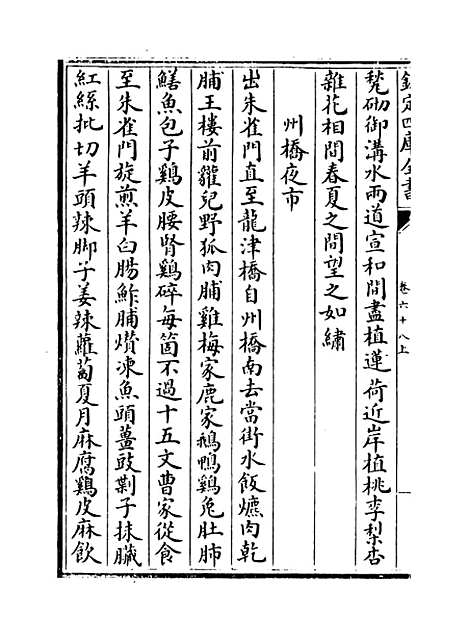 欽定四庫全書
卷六十八上
甃砌御溝水兩道宣和間盡植蓮荷近岸植桃李梨杏
雜花相間春夏之間望之如繡
州橋夜市
出朱雀門直至龍津橋自州橋南去當街水飯爊肉乾
脯王樓前獾兒野狐肉脯雞梅家鹿家鵝鴨鷄兔肚肺
鱔魚包子鷄皮腰腎鷄碎每箇不過十五文曹家從食
至朱雀門旋煎羊白腸鮓脯㸇凍魚頭薑豉剿子抹臟
紅絲批切羊頭辣脚子姜辣蘿蔔夏月麻腐鷄皮麻飲